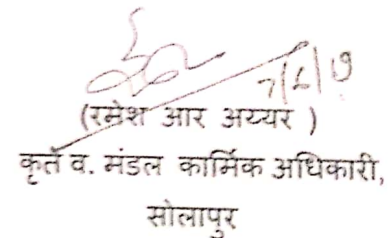 7/6/19
(रमेश आर अय्यर )
कृते व. मंडल कार्मिक अधिकारी,
सोलापुर